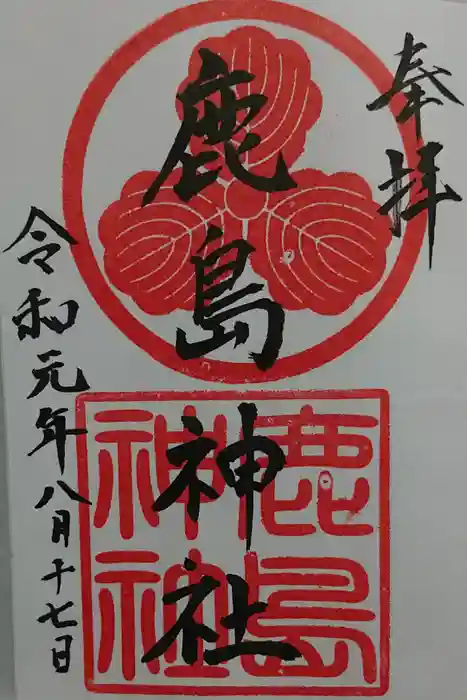 奉拝
鹿島神社
鹿島
神社
令和元年八月十七日